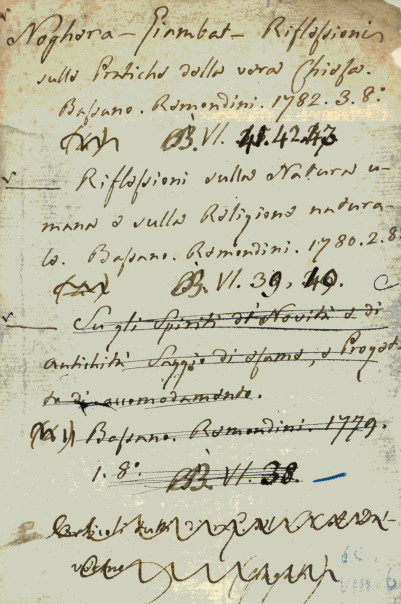 Noghera – Giambat – Riflessioni
sulle Pratiche della vera Chiesa.
Bassano. Remondini. 1782. 3. 8.°
BB. VI. 41. 42. 43
Riflessioni sulla Natura u-
mana e sulla Religione natura-
le. Bassano. Remondini. 1780. 2. 8.°
BB. VI. 39, 40.
Sugli Spiriti di Novità e di
antichità Saggio di esame, e Proget-
to di accomodamento.
Bassano. Remondini. 1779.
1. 8.°
BB. VI. 38